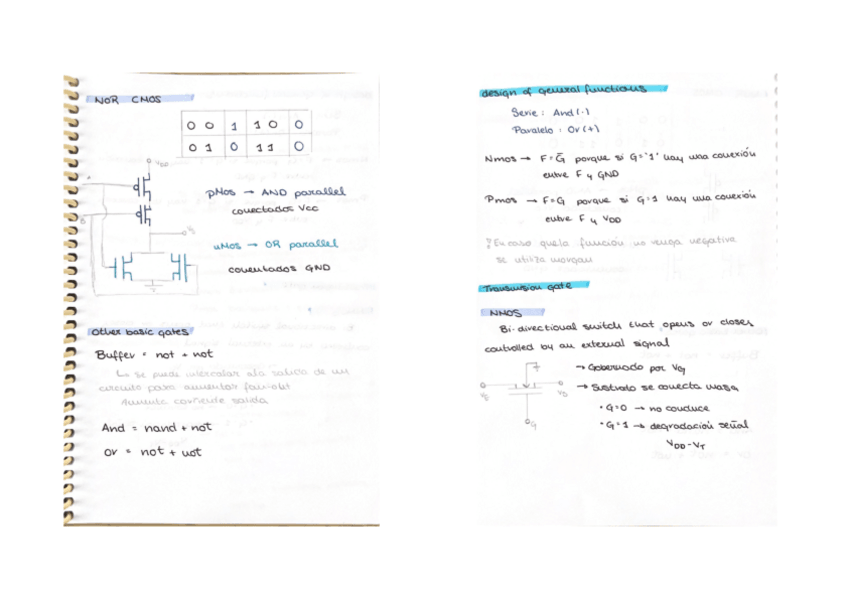 NOR CMOS
0 0 1 1 0 0
0 1 0 1 1 0
VDD
pNos → AND parallel
conectados Vcc
nNos → OR parallel
conentados GND
Other basic gates
Buffer = not + not
↳ se puede intercalar a la salida de un
circuito para aumentar fan-out
Aumenta corriente salida
And = nand + not
or = not + not
design of general functions
Serie : And (·)
Paralelo : Or (+)
Nmos → F = G̅ porque si G='1' hay una conexión
entre F y GND
Pmos → F=G porque si G=1 hay una conexión
entre F y VDD
En caso que la función no venga negativa
se utiliza morgan
Transmission gate
NMOS
Bi-directional switch that opens or closes
controlled by an external signal
→ Gobernado por VG
→ Sustrato se conecta masa
• G=0 → no conduce
• G=1 → degradación señal
VDD-VT
G